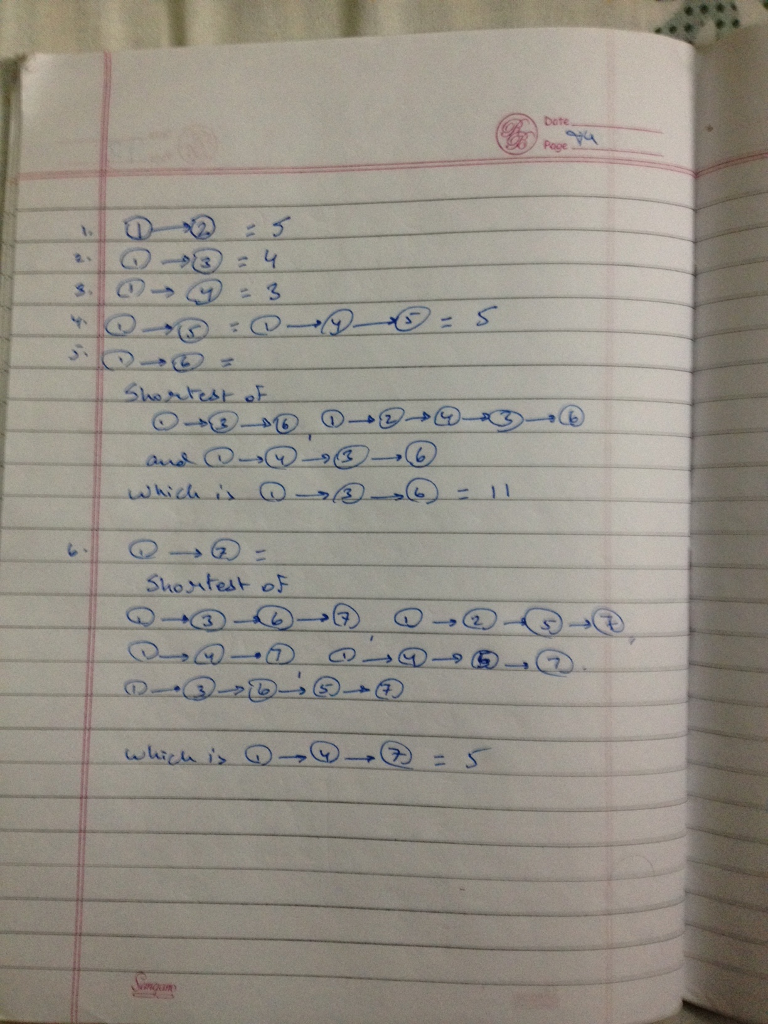 Date
Page 74
1. ① → ② = 5
2. ① → ③ = 4
3. ① → ④ = 3
4. ① → ⑤ = ① → ④ → ⑤ = 5
5. ① → ⑥ =
Shortest of
① → ③ → ⑥, ① → ② → ④ → ③ → ⑥
and ① → ④ → ③ → ⑥
which is ① → ③ → ⑥ = 11
6. ① → ⑦ =
Shortest of
① → ③ → ⑥ → ⑦, ① → ② → ⑤ → ⑦,
① → ④ → ⑦, ① → ④ → ⑤ → ⑦.
① → ③ → ⑥ → ⑤ → ⑦
which is ① → ④ → ⑦ = 5
Sangam